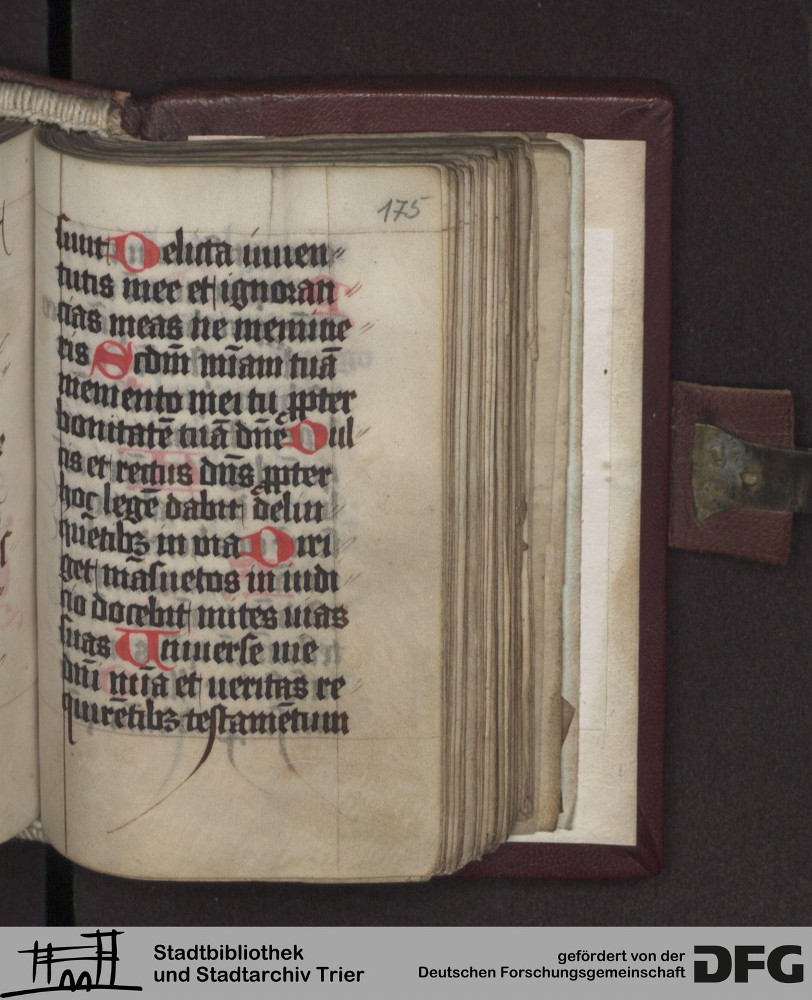 175
sunt Delicta iuuen
tutis mee et ignoran
cias meas ne memīne
ris Scdm̄ mīam tuā
memento mei tu ꝓpter
bonitatē tuā dn̄e Dul
cis et rectus dn̄s ꝓpter
hoc legē dabit delin
quētibꝫ in uia Diri
get māsuetos in iudi
cio docebit mites uias
suas Uniuerse uie
dn̄i mīa et ueritas re
quirētibꝫ testamētum
Stadtbibliothek
und Stadtarchiv Trier
gefördert von der
Deutschen Forschungsgemeinschaft
DFG